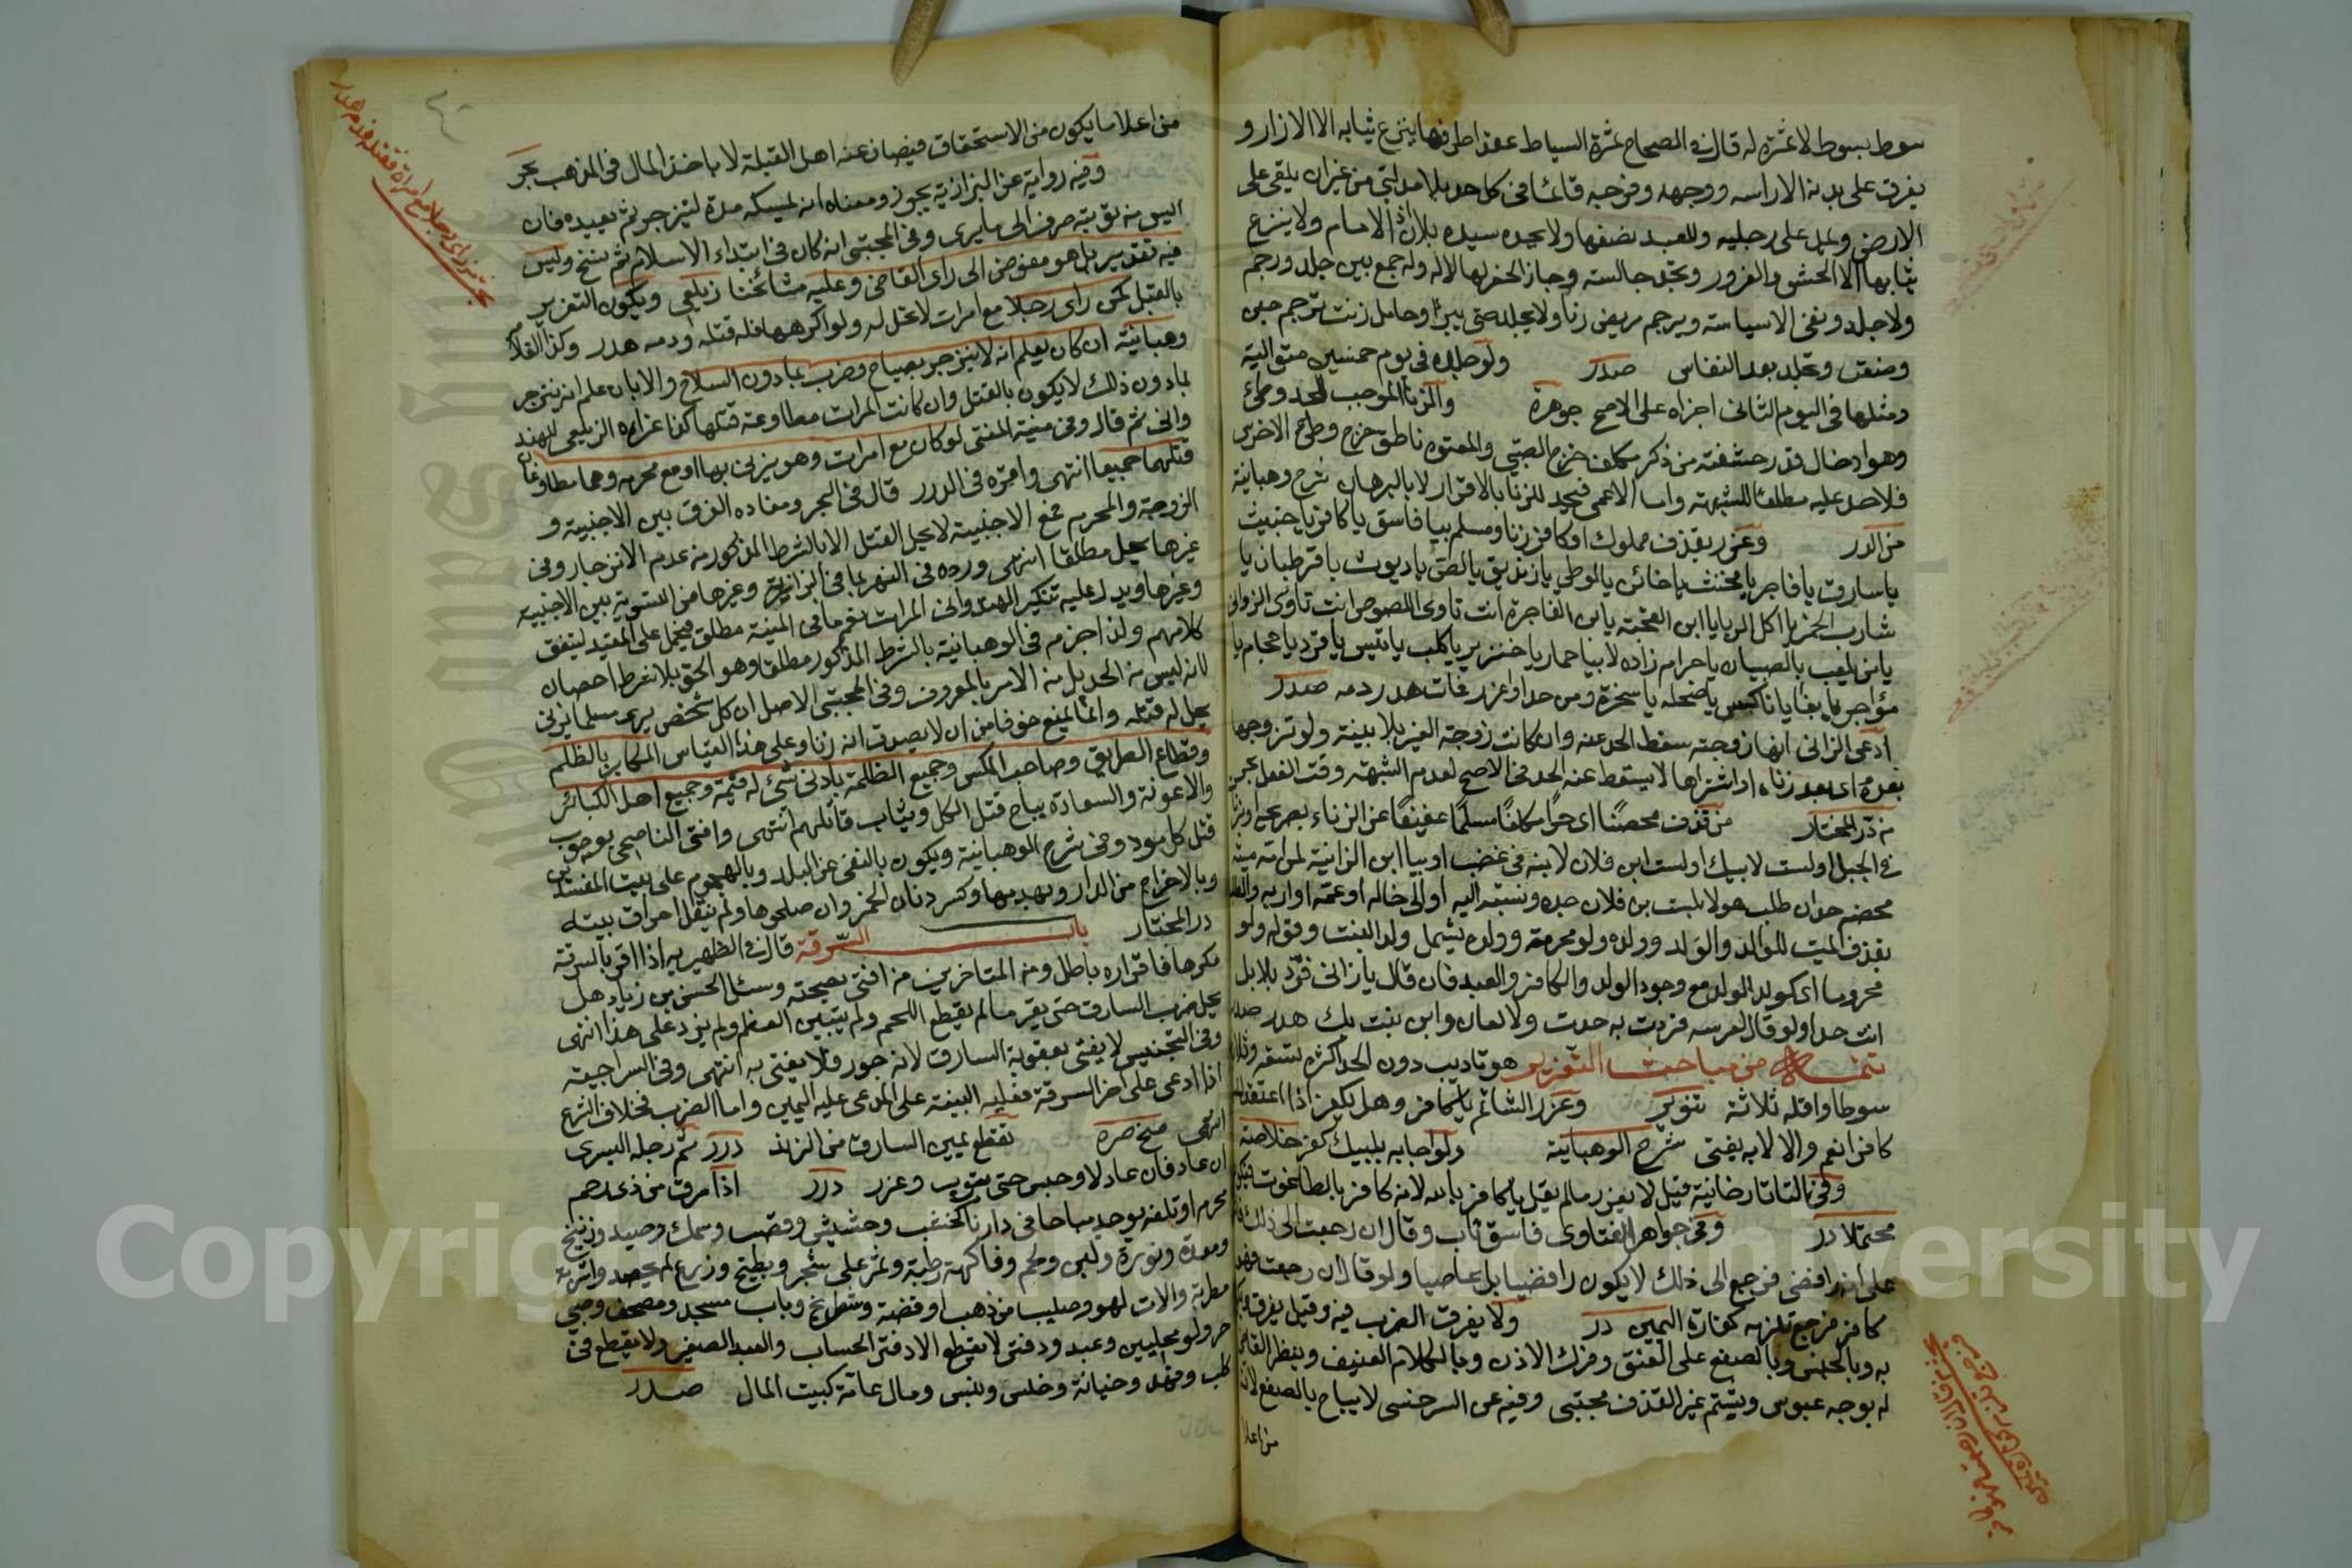 سوط بسوط لا ثمرة له قال في الصحاح ثمرة السياط عقد اطرافها ينزع ثيابه الا الازار و
يفرق على بدنه الا راسه ووجهه وفرجه قائما في كل حد بلا مد لتي من غير ان يلقى على
الارض ويمد على رجليه وللعبد نصفها ولا يحده سيده بلا اذن الامام ولا ينزع
ثيابها الا الحشو والفرو وتحد جالسته وجاز الحفر لها لا له ولا جمع بين جلد ورجم
ولا جلد ونفي الا سياسته ويرجم مريض زنا ولا يجلد حتى يبرأ وحامل زنت ترجم حين
وضعت وتجلد بعد النفاس صدر ولو جلده في يوم خمسين متوالية
ومثلها في اليوم الثاني اجزاه على الاصح جوهرة والزنا الموجب للحد وطئ
وهو ادخال قدر حشفته من ذكر مكلف خرج الصبي والمعتوه ناطق خرج وطئ الاخرس
فلا حد عليه مطلقا للشبهة واما الاعمى فيحد للزنا بالاقرار لا بالبرهان شرح وهبانية
من الدر وعزر بقذف مملوك او كافر بزنا ومسلم بيا فاسق يا كافر يا خبيث
يا سارق يا فاجر يا مخنث يا خائن يا لوطي يا زنديق يا لص يا ديوث يا قرطبان يا
شارب الخمر يا اكل الربا يا ابن القحبة يا ابن الفاجرة انت تاوى اللصوص انت تاوى الزواني
يا من يلعب بالصبيان يا حرام زاده لا بيا حمار يا خنزير يا كلب يا تيس يا قرد يا حجام يا
مؤاجر يا بغا يا ناكس يا ضحكه يا سخرة ومن حد او عزر فمات هدر دمه صدر
ادعى الزاني انها زوجته سقط الحد عنه وان كانت زوجة الغير بلا بينة ولو تزوجها
بعده اى بعد زناه او اشتراها لا يسقط عنه الحد في الاصح لعدم الشبهة وقت الفعل بحر
من در المختار من قذف محصنا اى حرا مكلفا مسلما عفيفا عن الزناء بصريحه او بزنأت
في الجبل او لست لابيك او لست ابن فلان لابنه في غضب او بيا ابن الزانية لمن امه ميتة
محصنه حد ان طلب هو لا بلست بن فلان جده ونسبته اليه او الى خاله او عمه او رابه والطلب
بقذف الميت للوالد والولد وولده ولو محرمة وولده يشمل ولد البنت وقوله ولو
محروما اى كولد الولد مع وجود الولد والكافر والعبد فان قال يا زاني فرد بلا بل
انت حدا ولو قال لعرسه فردت به حدت ولا لعان وابن بنت بك هدر صدر
تتمة من مباحث التعزير هو تاديب دون الحد اكثره تسعة وثلاثون
سوطا واقله ثلاثة تنوير وعزر الشاتم يا كافر وهل يكفر اذا اعتقده
كافرا نعم والا لا به يفتى شرح الوهبانية ولو اجابه بلبيك كفر خلاصة
وفي التاتارخانية قيل لا يعزر مالم يقل يا كافر بالله لانه كافر بالطاغوت فيكون
محتملا در وفي جواهر الفتاوى فاسق تاب وقال ان رجعت الى ذلك
على انه رافضي فرجع الى ذلك لا يكون رافضيا بل عاصيا ولو قال ان رجعت فهو
كافر فرجع تلزمه كفارة اليمين در ولا يفرق الضرب فيه وقيل يفرق
به وبالحبس وبالصفع على العنق وفرك الاذن وبالكلام العنيف وبنظر القاضي
له بوجه عبوس وبشتم غير القذف مجتبى وفيه عن السرخسي لا يباح بالصفع لانه
من اعلا
من اعلا ما يكون من الاستحقاق فيصان عنه اهل القبلة لا باخذ المال في المذهب بحر
وفيه رواية عن البزازية يجوز ومعناه ان يمسكه مدة لينزجر ثم يعيده فان
ايس من توبته صرف الى ما يرى وفي المجتبى انه كان في ابتداء الاسلام ثم نسخ وليس
فيه تقدير بل هو مفوض الى راى القاضي وعليه مشائخنا زيلعي ويكون التعزير
بالقتل كمن راى رجلا مع امرات لا تحل له ولو اكرهها فله قتله ودمه هدر وكذا الغلام
وهبانية ان كان يعلم انه لا ينزجر بصياح وضرب بما دون السلاح والا بان علم انه ينزجر
بما دون ذلك لا يكون بالقتل وان كانت المرات مطاوعة قتلها كذا عزاه الزيلعي للهند
واني ثم قال وفي منية المفتي لو كان مع امرات وهو يزني بها او مع محرمه وهما مطاوعان
قتلهما جميعا انتهى واقره في الدرر قال في البحر ومفاده الفرق بين الاجنبية و
الزوجة والمحرم فمع الاجنبية لا يحل القتل الا بالشرط المذكور من عدم الانزجار وفي
غيرها يحل مطلقا انتهى ورده في النهر بما في البزازية وغيرها من التسوية بين الاجنبية
وغيرها ويدل عليه تنكير الهندواني المرات نعم ما في المنية مطلق فيحمل على المقيد ليتفق
كلامهم ولذا جزم في الوهبانية بالشرط المذكور مطلقا وهو الحق بلا شرط احصان
لانه ليس من الحد بل من الامر بالمعروف وفي المجتبى الاصل ان كل شخص يرى مسلما يزني
يحل له قتله وانما يمنع خوفا من ان لا يصدق انه زنا وعلى هذا القياس المكابر بالظلم
وقطاع الطريق وصاحب المكس وجميع الظلمة بادنى شئ له قيمة وجميع اهل الكبائر
والاعونة والسعادة يباح قتل الكل ويثاب قاتلهم انتهى وافتى الناصحي بوجوب
قتل كل موذ وفي شرح الوهبانية ويكون بالنفي عن البلد وبالهجوم على بيت المفسدين
وبالاخراج من الدار وبهدمها وكسر دنان الخمر وان ملحوها ولم ينقل احراق بيته
در المختار باب السرقة قال في الظهيريه اذا اقر بالسرقة
مكرها فاقراره باطل ومن المتاخرين من افتى بصحته وسئل الحسن بن زياد هل
يحل ضرب السارق حتى يقر مالم يقطع اللحم ولم يتبين العظم ولم يزد على هذا انتهى
وفي التجنيس لا يفتى بعقوبة السارق لانه جور فلا يفتى به انتهى وفي السراجية
اذا ادعى على اخر السرقة فعليه البينة على المدعى عليه اليمين واما الضرب فخلاف الشرع
انتهى منح صره تقطع يمين السارق من الزند درر ثم رجله اليسرى
ان عاد فان عاد لا وحبس حتى يتوب وعزر درر اذا سرق من ذي رحم
محرم او تلفه يوجد مباحا في دارنا كخشب وحشيش وقصب وسمك وصيد وزرنيخ
ومغرة ونورة ولبن ولحم وفاكهة رطبة وثمر على شجر وبطيخ وزرع لم يحصد واشربة
مطربة والات لهو وصليب من ذهب او فضة وشطرنج وباب مسجد ومصحف وصبي
حر ولو محليين وعبد ودفتر لا يقطع الا دفتر الحساب والعبد الصغير ولا يقطع في
كلب وفهد وخيانة وخلس ونبس ومال عامة كبيت المال صدر